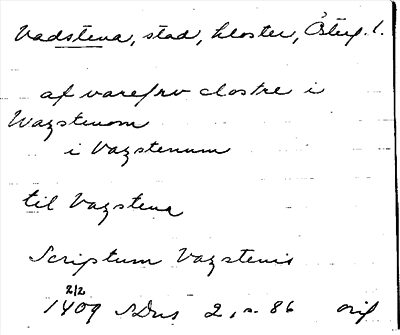 Vadstena, stad, kloster, Östg. l.
af varefrv clostre i
Wazstenom
i Vazstenum
til Vazstena
Scriptum Vazstenis
2/2
1409 SDns 2, s. 86 orig